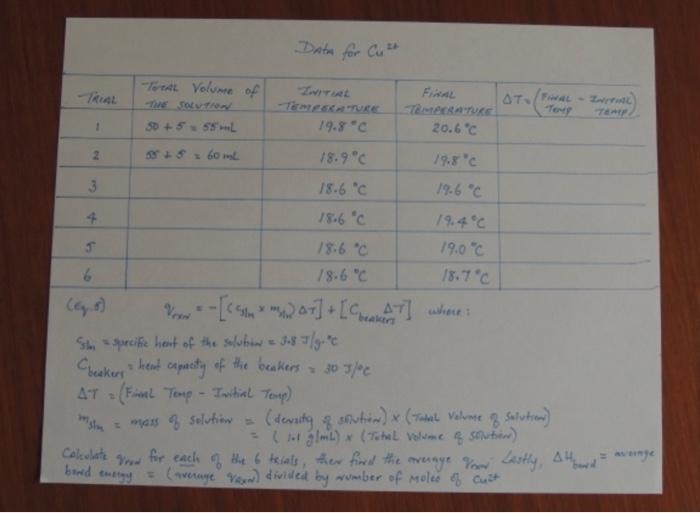 DATA for Cu²⁺
TRIAL | TOTAL Volume of THE SOLUTION | INITIAL TEMPERATURE | FINAL TEMPERATURE | ΔT = (FINAL TEMP - INITIAL TEMP)
1 | 50 + 5 = 55 mL | 19.8 °C | 20.6 °C
2 | 55 + 5 = 60 mL | 18.9 °C | 19.8 °C
3 | 18.6 °C | 19.6 °C
4 | 18.6 °C | 19.4 °C
5 | 18.6 °C | 19.0 °C
6 | 18.6 °C | 18.7 °C
(Eq. 8) q_rxn = -[(c_soln × m_soln) ΔT] + [C_beakers ΔT] where:
c_soln = specific heat of the solution = 3.8 J/g·°C
C_beakers = heat capacity of the beakers = 30 J/°C
ΔT = (Final Temp - Initial Temp)
m_soln = mass of solution = (density of solution) × (Total Volume of Solution)
= (1.1 g/mL) × (Total Volume of Solution)
Calculate q_rxn for each of the 6 trials, then find the average q_rxn. Lastly, ΔH_bond = average
bond energy = (average q_rxn) divided by number of moles of Cu²⁺